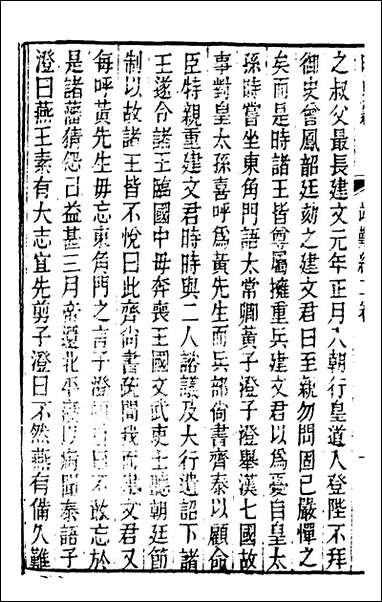 之叔父最長建文元年正月入朝行皇道入登陛不拜
御史曾鳳韶廷劾之建文君曰至親勿問固已嚴憚之
矣而是時諸王皆尊屬擁重兵建文君以爲憂自皇太
孫時嘗坐東角門語太常卿黃子澄子澄舉漢七國故
事對皇太孫喜呼爲黃先生而兵部尚書齊泰以顧命
臣特親重建文君時時與二人諮議及大行遺詔下諸
王遂令諸王臨國中毋奔喪王國文武吏士聽朝廷節
制以故諸王皆不悅曰此齊尚書疏間我而建文君又
每呼黃先生毋忘東角門之言子澄頓首曰不敢忘於
是諸藩猜怨日益甚三月帝還北平以病聞泰語子
澄曰燕王素有大志宜先剪子澄曰不然燕有備久難